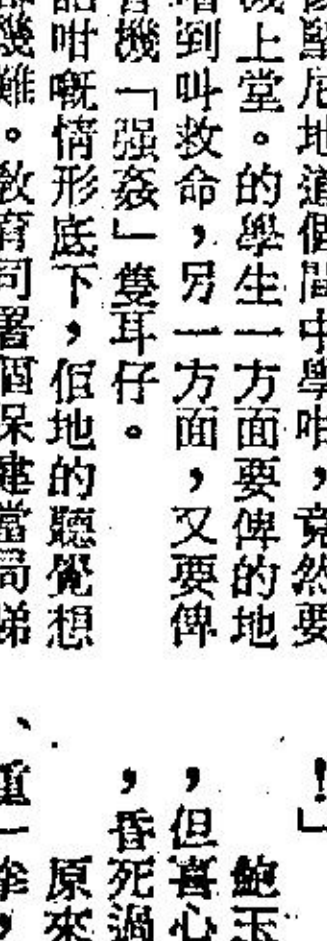 堅尼地道個間中學咁，竟然要
上堂。的學生一方面要俾的地
到叫救命，另一方面，又要俾
機「强姦」隻耳仔。
咁嘅情形底下，佢地的聽覺想
幾難。教育司署個保健當局睇
！」
鮑玉
，但喜心
，昏死過
原來
、重一拳，